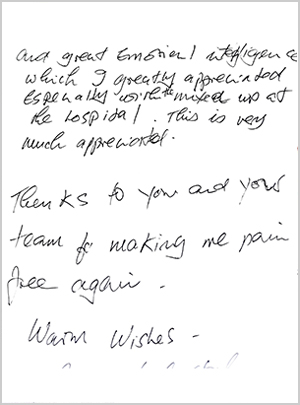 and great Emotional intelligence
which I greatly appreciated
Especially with the mixed up at
the hospital. This is very
much appreciated.
Thanks to you and your
team for making me pain
free again -
Warm Wishes -